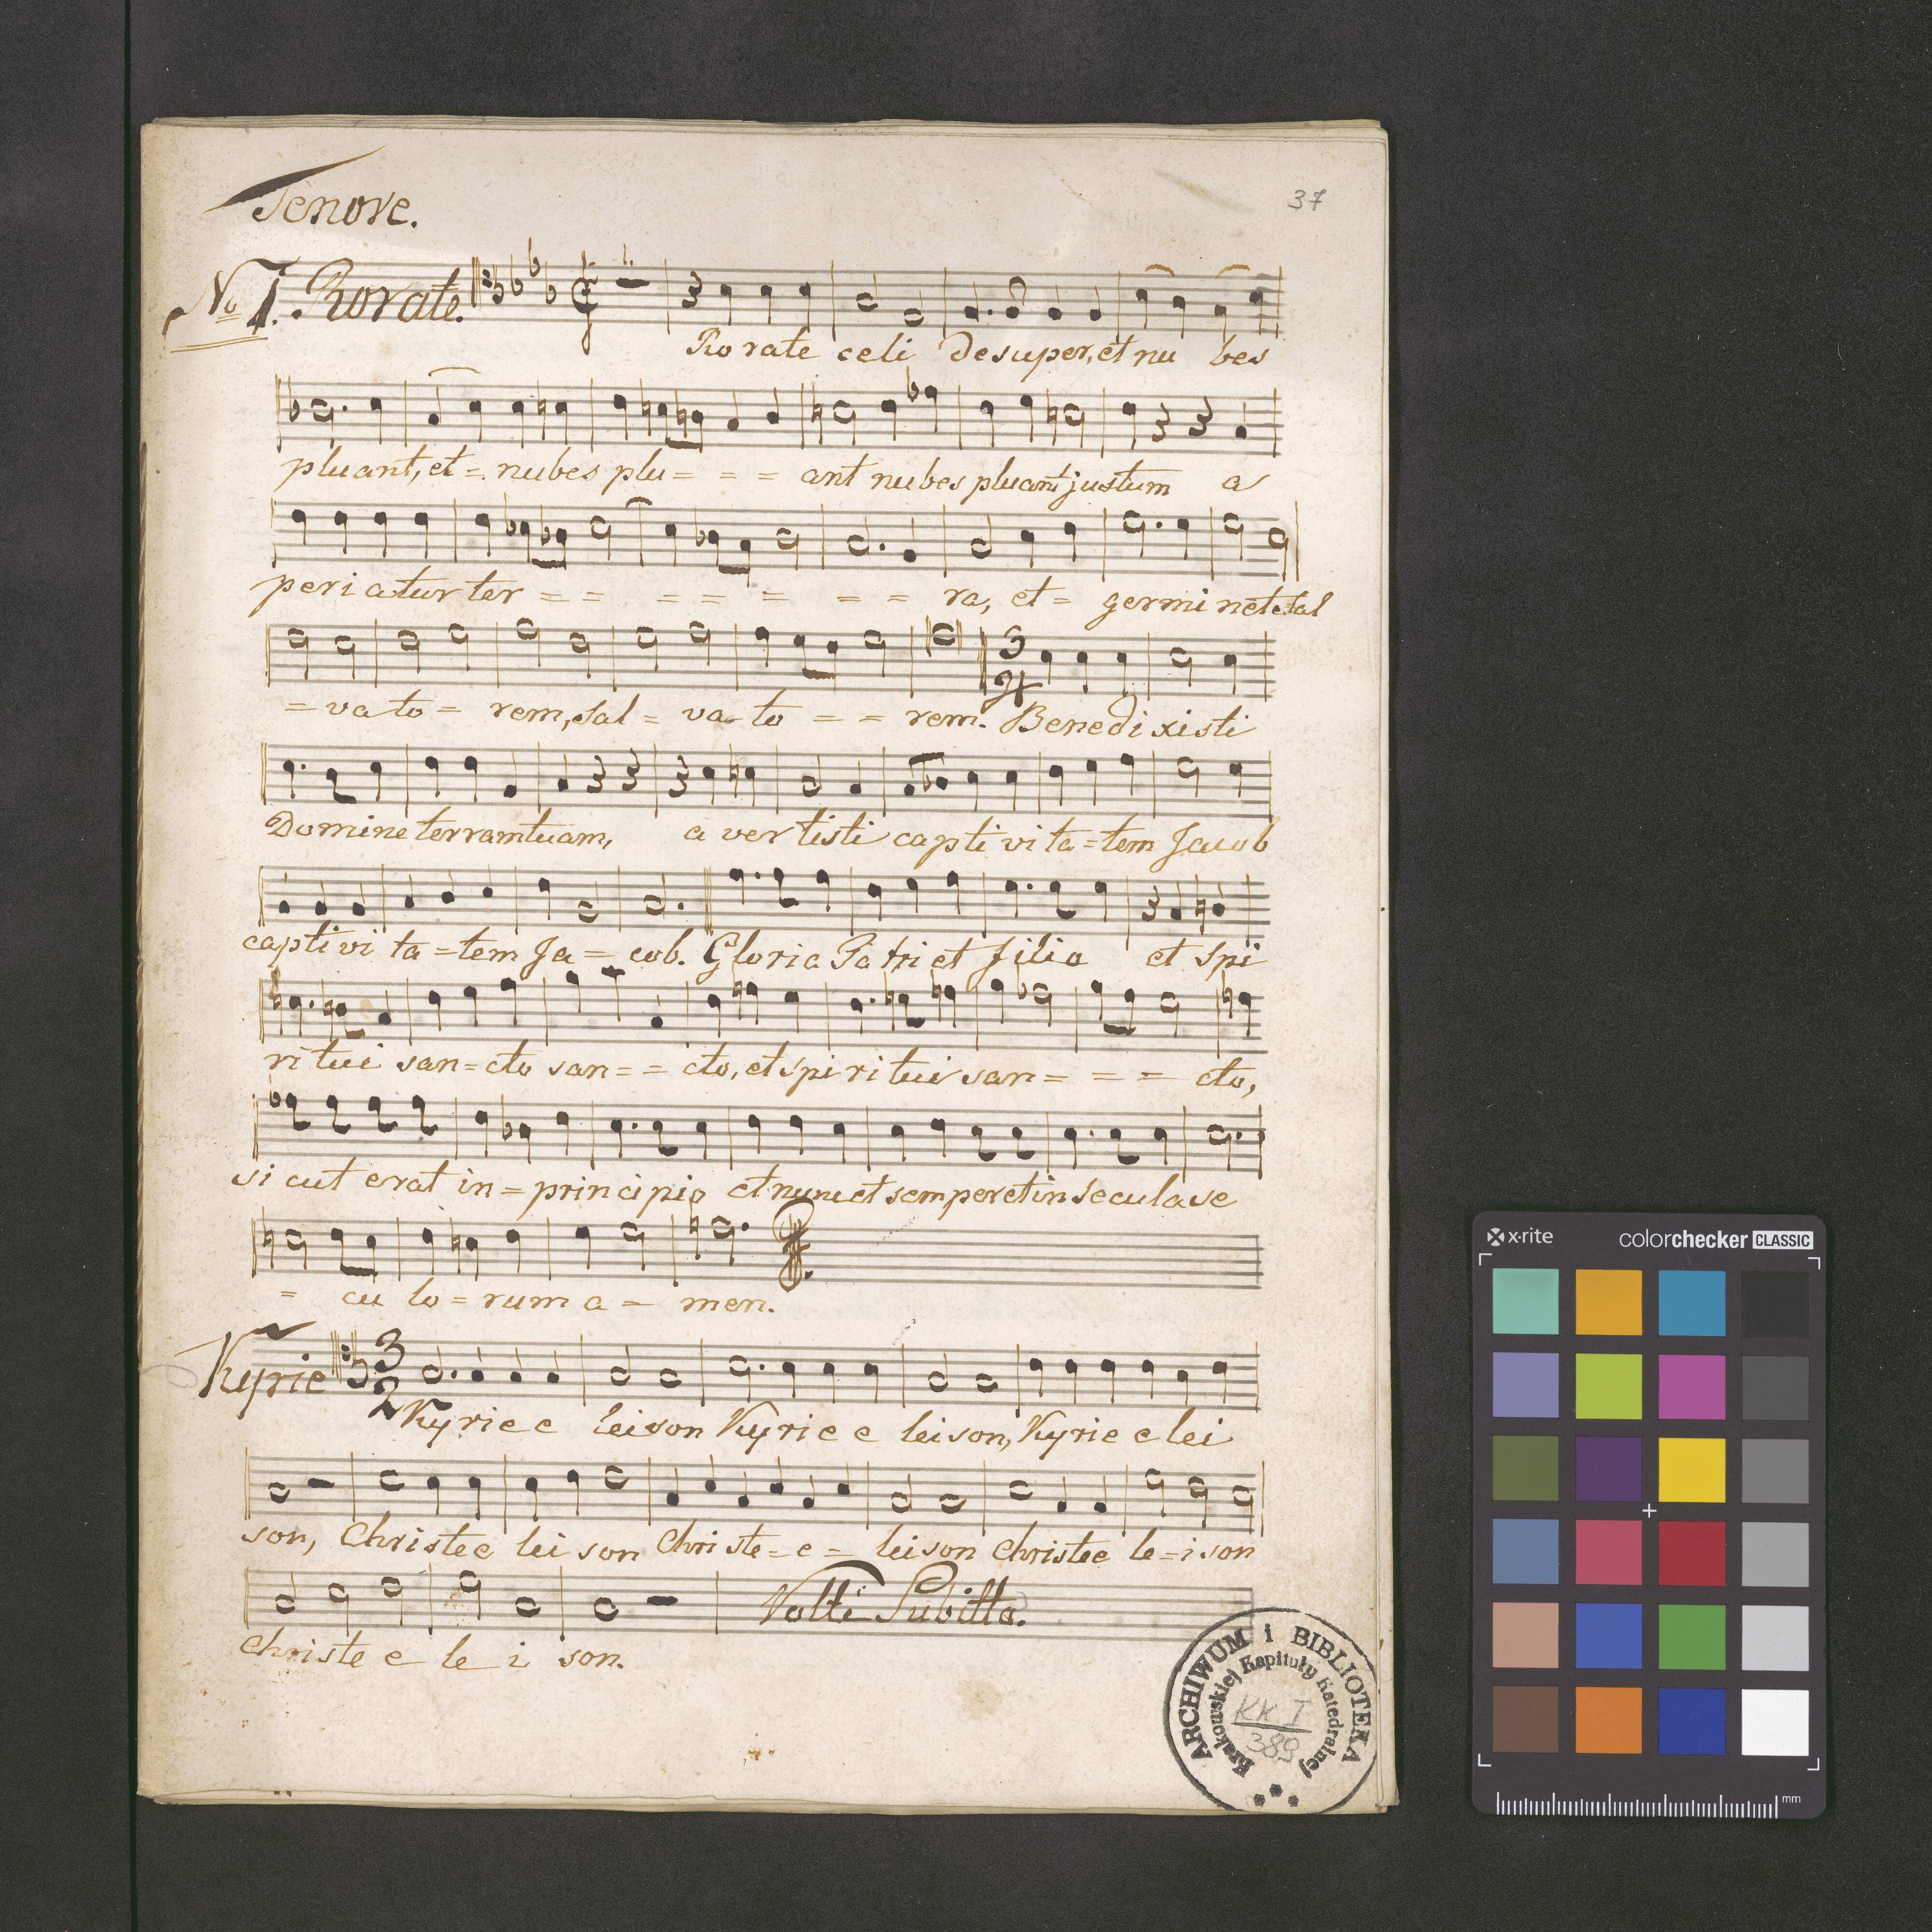 Tenore.
37
No 1. Rorate.
Rorate celi desuper, et nu bes
pluant, et = nubes plu = = = ant nubes pluant justum a
peri atur ter = = = = = = = ra, et = germi net Sal
= va to = rem, Sal = va to = = rem. Benedi xisti
Domine terram tuam, a ver tisti capti vi ta = tem Jacob
capti vi ta = tem Ja = cob. Gloria Pa tri et filio et Spi
ri tui san = cto san = = cto, et spi ri tui san = = = cto,
si cut erat in = principio et nunc et semper et in secula se
= cu lo = rum a = men.
Kyrie 3 2
Kyrie e leison Kyrie e leison, Kyrie e lei
son, Christe e lei son Chri ste = e = leison Christe e le = i son
Christe e le i son.
Volti Subitto.
ARCHIWUM i BIBLIOTEKA
Krakowskiej Kapituły Katedralnej
KK I
389
x·rite colorchecker CLASSIC
mm